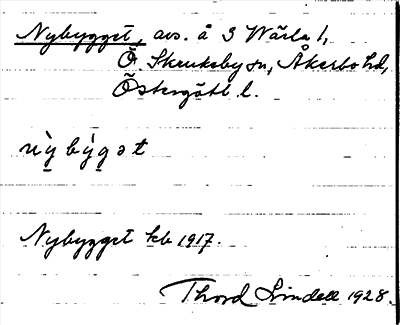 Nybygget, avs. å 3 Wärla 1,
Ö. Skruksby sn, Åkerbo hd,
Östergötl. l.
nỳ bý̀gət
Nybygget kb 1917.
Thord Lindell 1928.